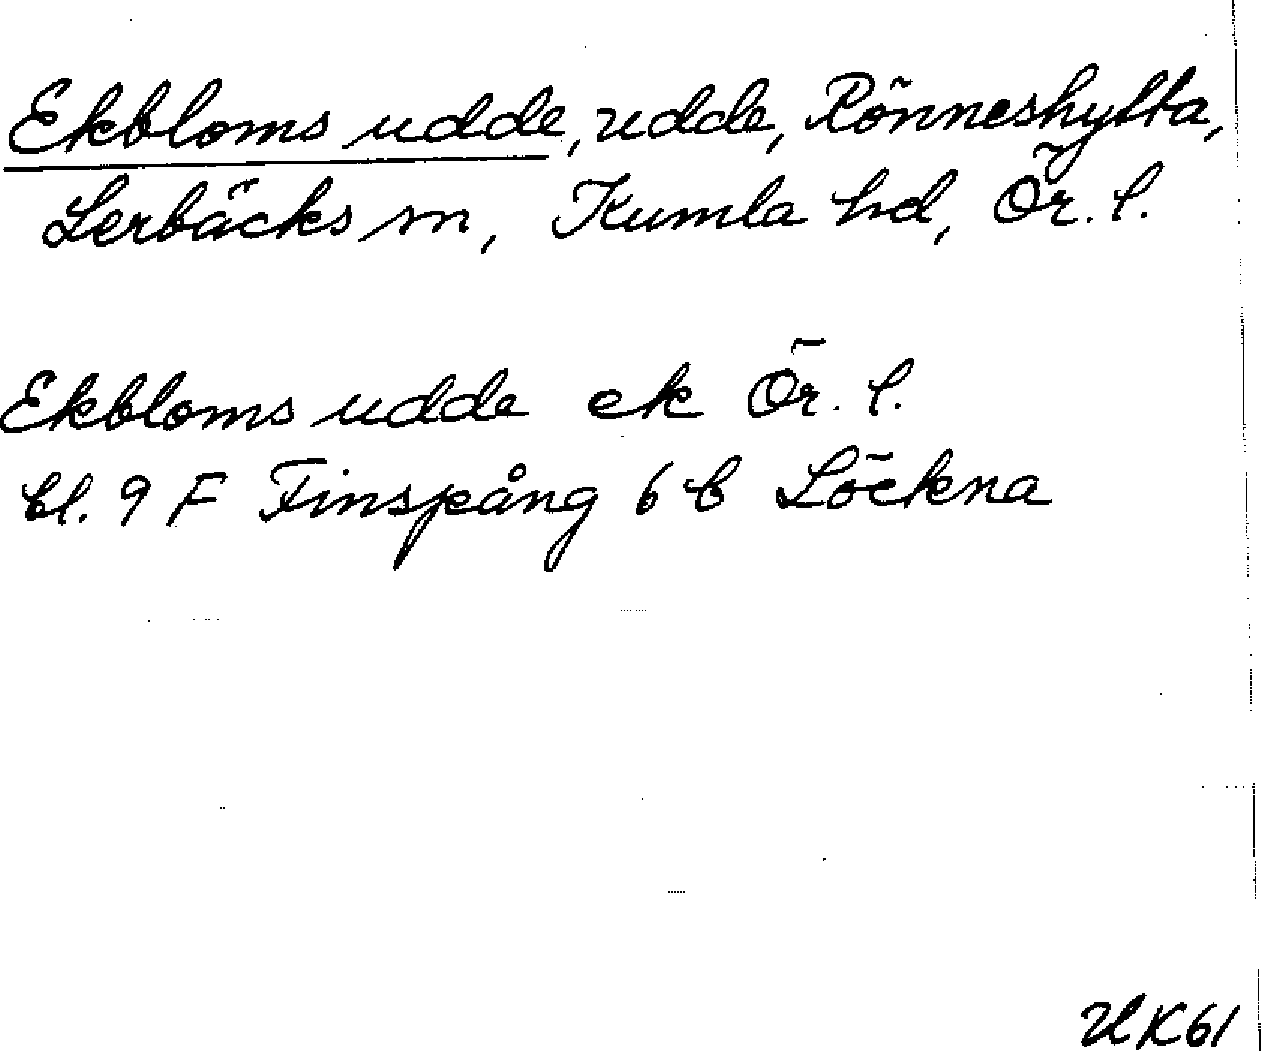 Ekbloms udde, udde, Rönneshytta,
Lerbäcks sn, Kumla hd, Ör. l.
Ekbloms udde ek Ör. l.
bl. 9 F Finspång 6 b Löckna
UK61